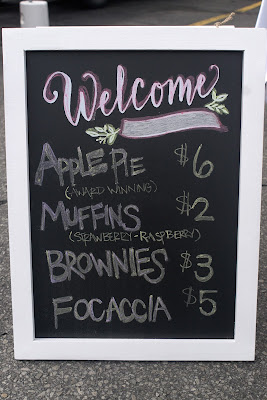 Welcome
APPLE PIE $6
(AWARD WINNING)
MUFFINS $2
(STRAWBERRY-RASPBERRY)
BROWNIES $3
FOCACCIA $5